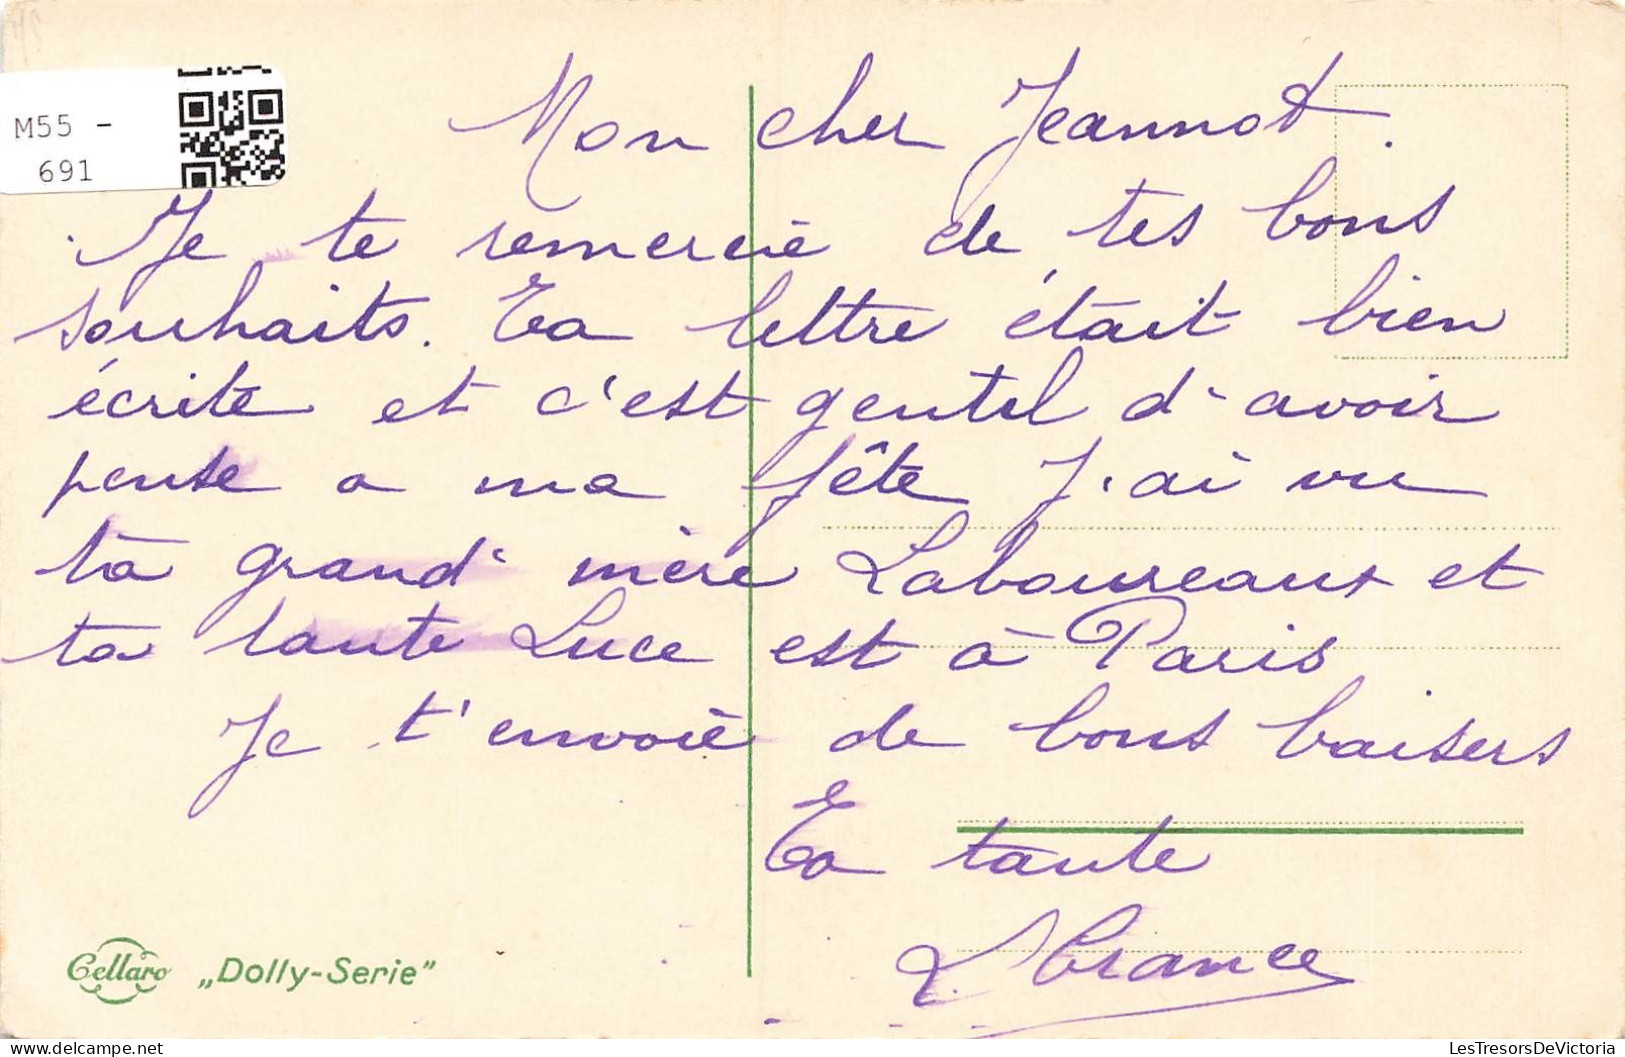 M55 -
691
Mon cher Jeannot.
Je te remercie de tes bons
souhaits. Ta lettre était bien
écrite et c'est gentil d'avoir
pensé a ma fête J'ai vu
ta grand'mère Laboureaux et
ta tante Luce est à Paris
Je t'envoie de bons baisers
Ta tante
France
Cellaro „Dolly-Serie”
LesTresorsDeVictoria